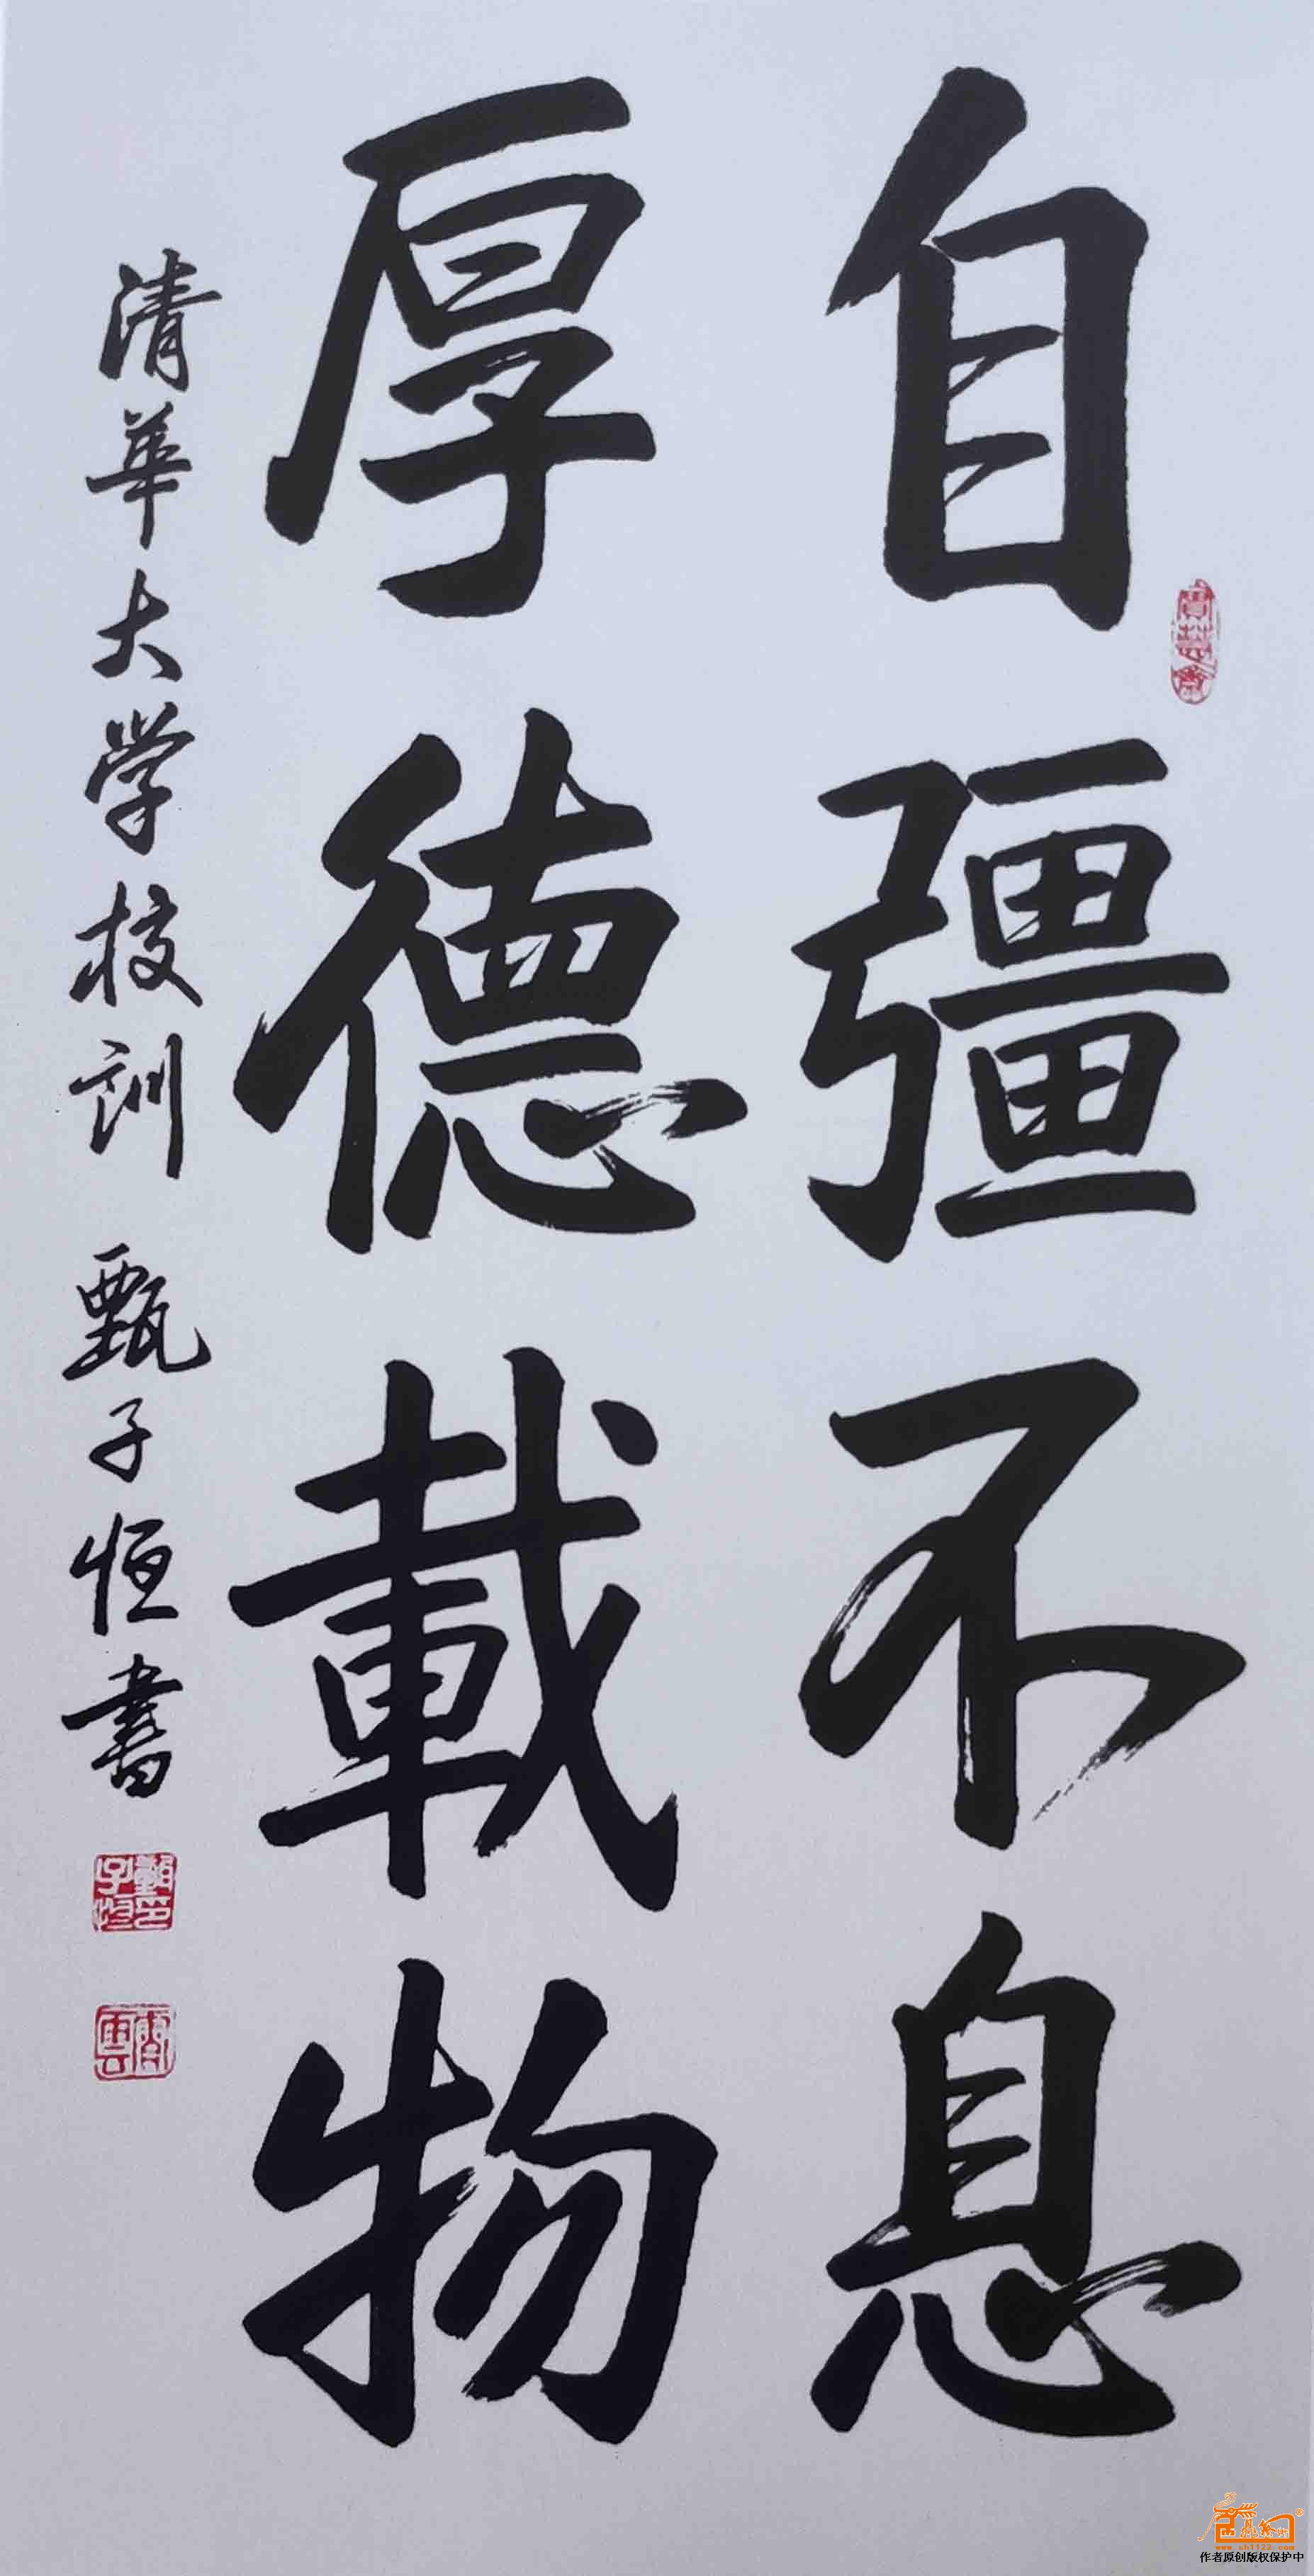 自彊不息
厚德載物
清華大学校訓 甄子恒書
www.ch1123.com
作者原创版权保护中